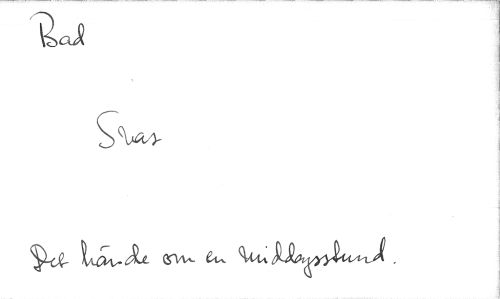 Bad
Svar
Det hände om en middagsstund.